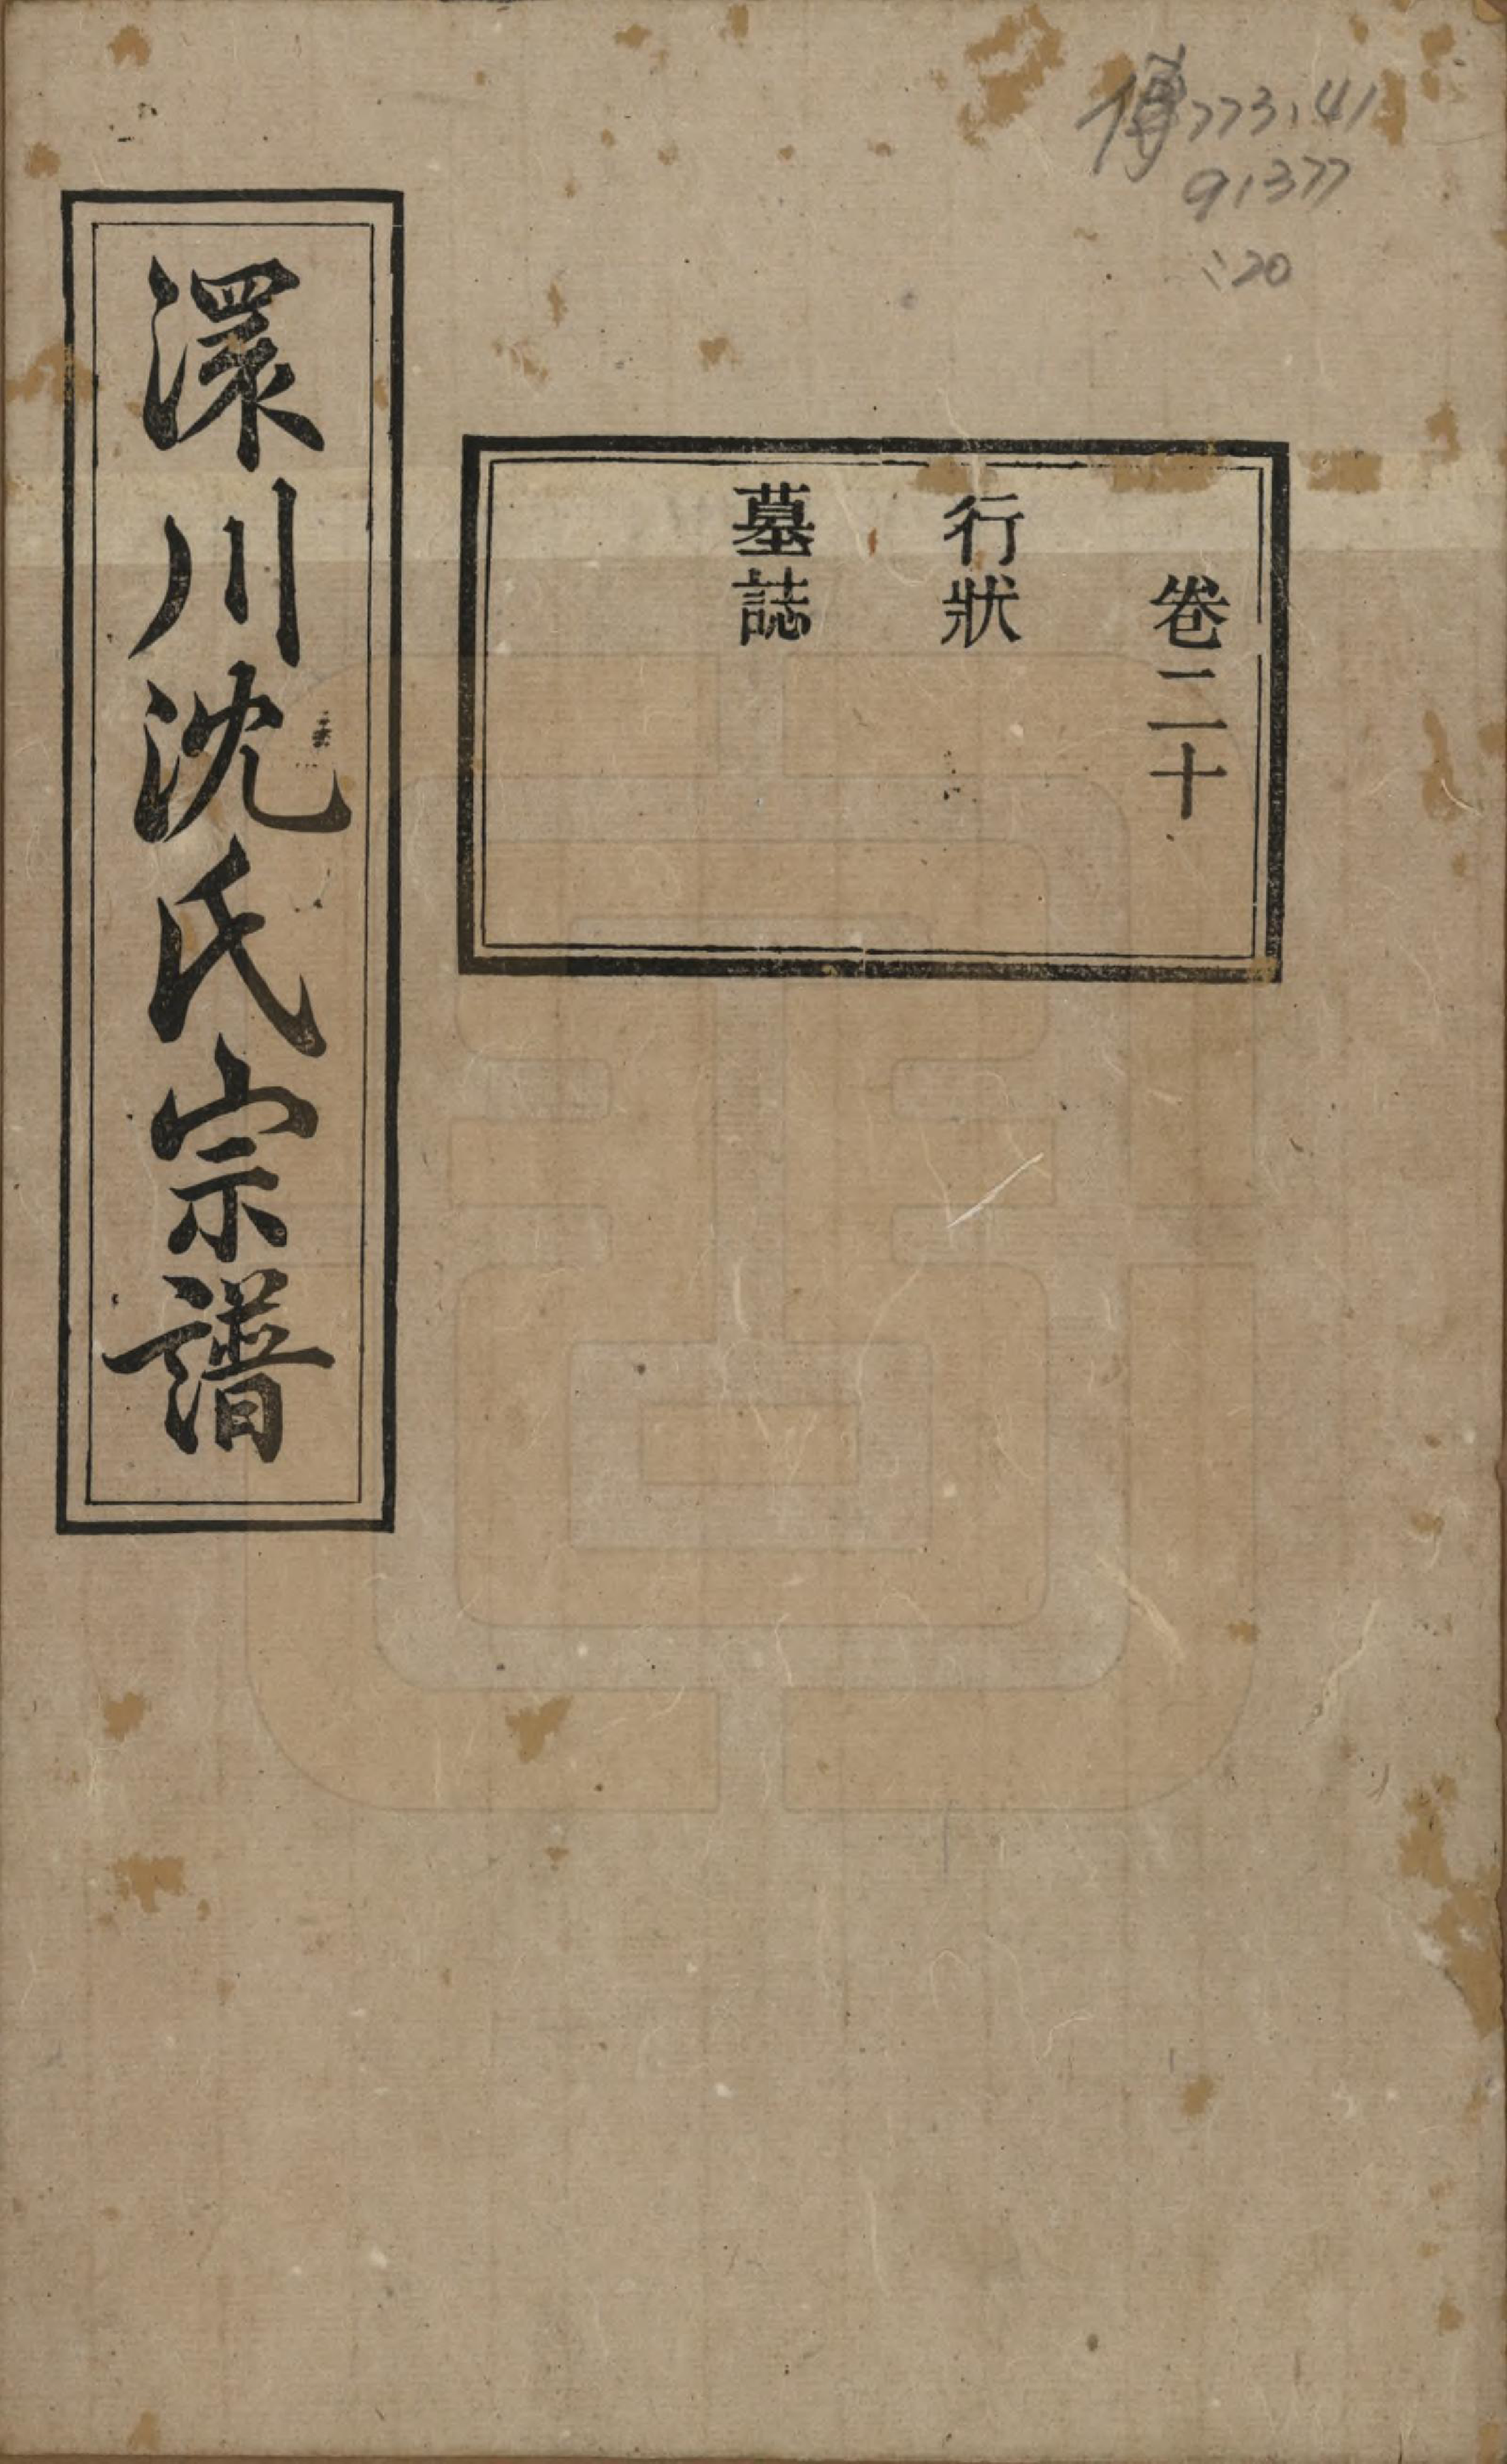 傳773.41
91377
:20
卷二十
行狀
墓誌
澴川沈氏宗譜